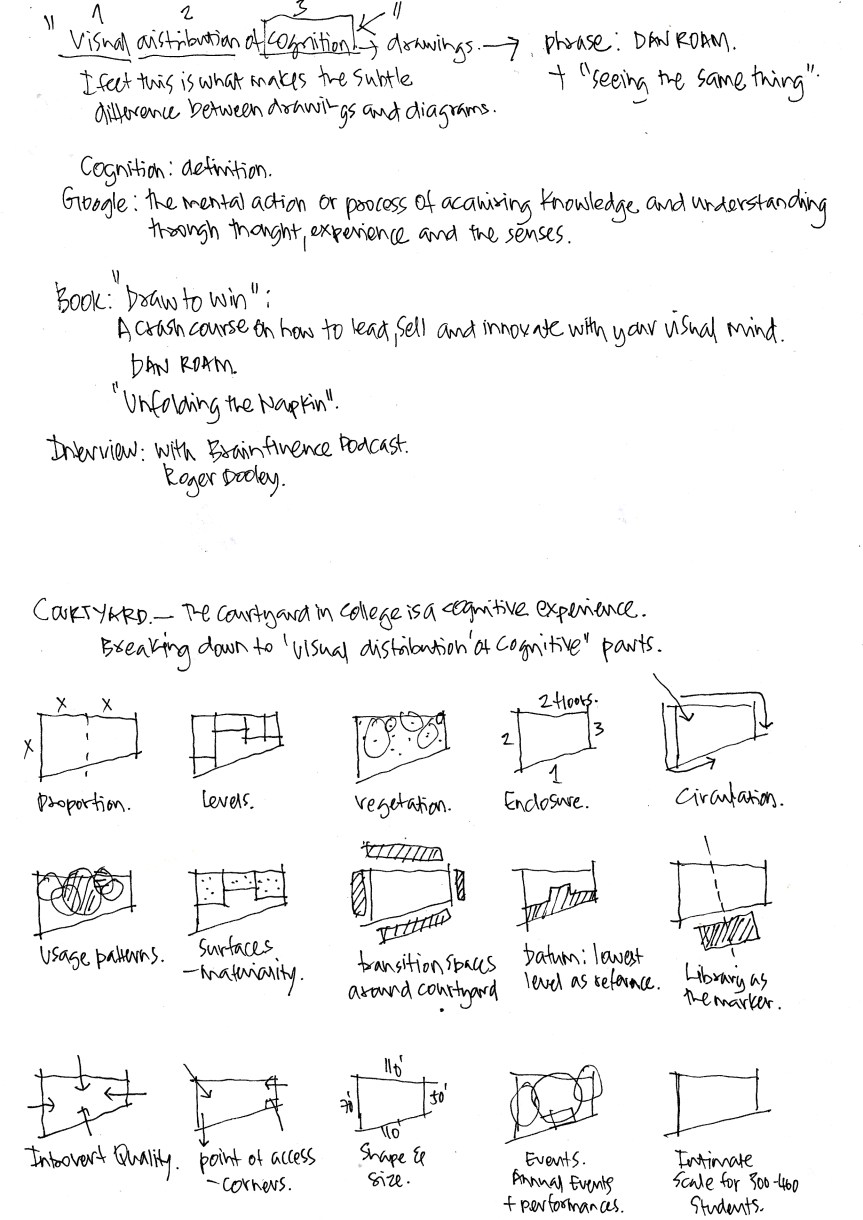 1 2 3
"Visual distribution of cognition" → drawings. → phrase: DAN ROAM.
+ "seeing the same thing".
I feel this is what makes the subtle
difference between drawings and diagrams.
Cognition: definition.
Google: the mental action or process of acquiring knowledge and understanding
through thought, experience and the senses.
Book: "Draw to win":
A crash course on how to lead, sell and innovate with your visual mind.
DAN ROAM.
"Unfolding the Napkin".
Interview: with Brainfluence Podcast.
Roger Dooley.
COURTYARD. — The courtyard in college is a cognitive experience.
Breaking down to 'visual distribution of cognitive" parts.
x x
x
Proportion.
Levels.
Vegetation.
2 floors.
2
3
1
Enclosure.
Circulation.
Usage patterns.
Surfaces
- materiality.
transition spaces
around courtyard
Datum: lowest
level as reference.
Library as
the marker.
Introvert Quality.
point of access
- corners.
110'
70'
50'
110'
Shape &
size.
Events.
Annual Events
+ performances.
Intimate
Scale for 300-400
Students.